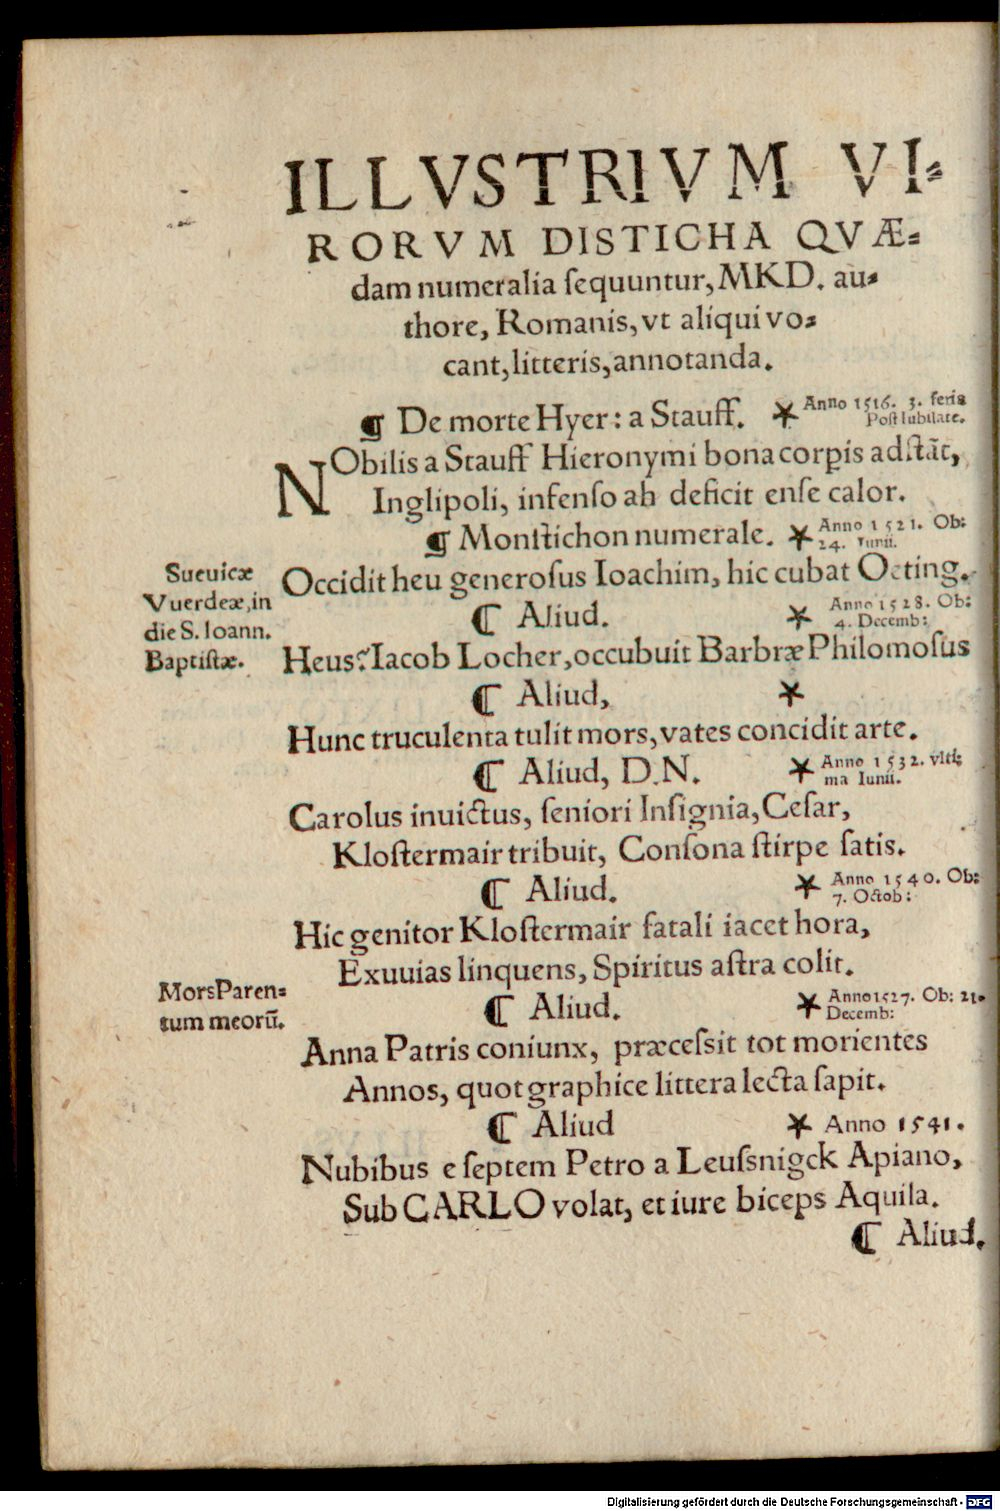 ILLVSTRIVM VI-
RORVM DISTICHA QVÆ-
dam numeralia ſequuntur, MKD. au-
thore, Romanis, vt aliqui vo-
cant, litteris, annotanda.
¶ De morte Hyer: a Stauff. * Anno 1516. 3. feria
Poſt Iubilate.
NObilis a Stauff Hieronymi bona corpis adſtāt,
Inglipoli, infenſo ah deficit enſe calor.
¶ Moniſtichon numerale. * Anno 1521. Ob:
24. Iunii.
Sueuicæ
Vuerdeæ, in
die S. Ioann.
Baptiſtæ.
Occidit heu generoſus Ioachim, hic cubat Oeting.
¶ Aliud. * Anno 1528. Ob:
4. Decemb:
Heus? Iacob Locher, occubuit Barbræ Philomoſus
¶ Aliud, *
Hunc truculenta tulit mors, vates concidit arte.
¶ Aliud, D.N. * Anno 1532. vlti-
ma Iunii.
Carolus inuictus, ſeniori Inſignia, Ceſar,
Kloſtermair tribuit, Conſona ſtirpe ſatis.
¶ Aliud. * Anno 1540. Ob:
7. Octob:
Hic genitor Kloſtermair fatali iacet hora,
Exuuias linquens, Spiritus aſtra colit.
Mors Paren-
tum meorū.
¶ Aliud. * Anno 1527. Ob: 21.
Decemb:
Anna Patris coniunx, præceſsit tot morientes
Annos, quot graphice littera lecta ſapit.
¶ Aliud * Anno 1541.
Nubibus e ſeptem Petro a Leuſsnigck Apiano,
Sub CARLO volat, et iure biceps Aquila.
¶ Aliud.
Digitalisierung gefördert durch die Deutsche Forschungsgemeinschaft - DFG